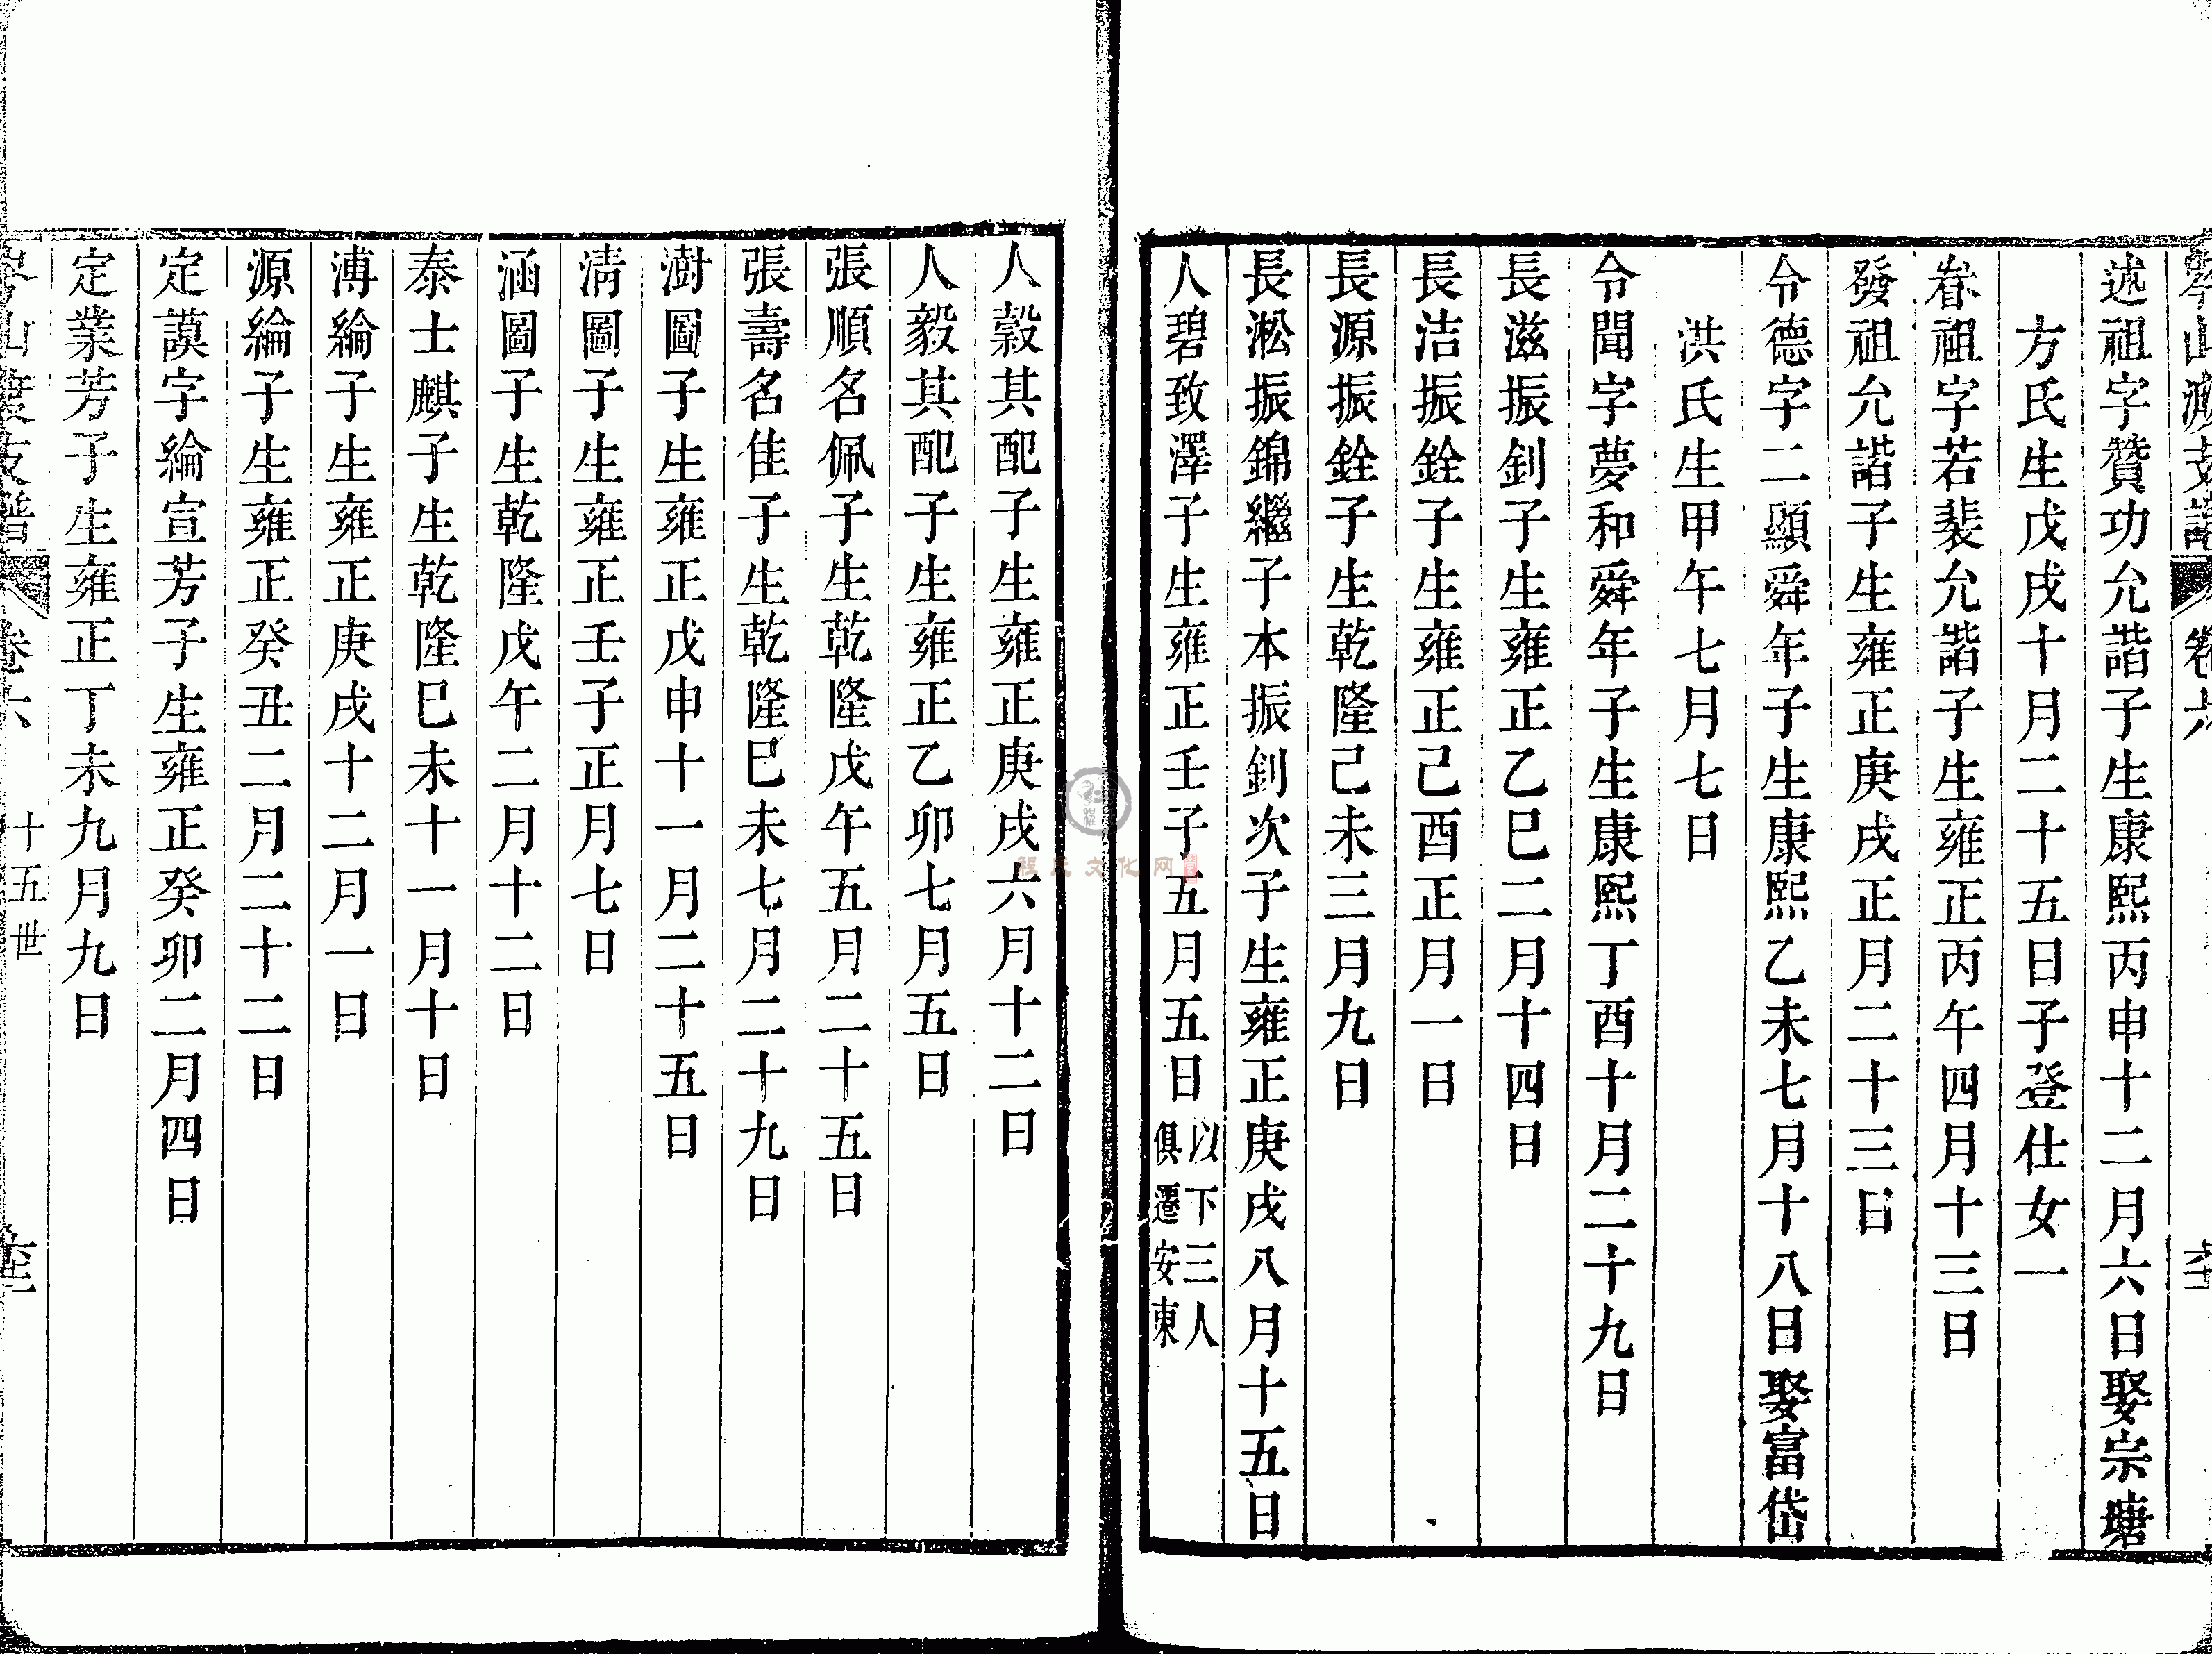 岑山渡支譜 卷六
述祖字贊功允諧子生康熙丙申十二月六日娶宗塘
方氏生戊戌十月二十五日子登仕女一
春祖字若裴允諧子生雍正丙午四月十三日
發祖允諧子生雍正庚戌正月二十三日
令德字二顯舜年子生康熙乙未七月十八日娶富岱
洪氏生甲午七月七日
令聞字夢和舜年子生康熙丁酉十月二十九日
長滋振釗子生雍正乙巳二月十四日
長洁振銓子生雍正己酉正月一日
長源振銓子生乾隆己未三月九日
長淞振錦繼子本振釗次子生雍正庚戌八月十五日
人碧致澤子生雍正壬子五月五日以下三人俱遷安東
人穀其配子生雍正庚戌六月十二日
人毅其配子生雍正乙卯七月五日
張順名佩子生乾隆戊午五月二十五日
張壽名佳子生乾隆巳未七月二十九日
澍圖子生雍正戊申十一月二十五日
清圖子生雍正壬子正月七日
涵圖子生乾隆戊午二月十二日
泰士麒子生乾隆巳未十一月十日
溥綸子生雍正庚戌十二月一日
源綸子生雍正癸丑二月二十二日
定謨字綸宣芳子生雍正癸卯二月四日
定業芳子生雍正丁未九月九日
岑山渡支譜 卷六 十五世
程氏文化网